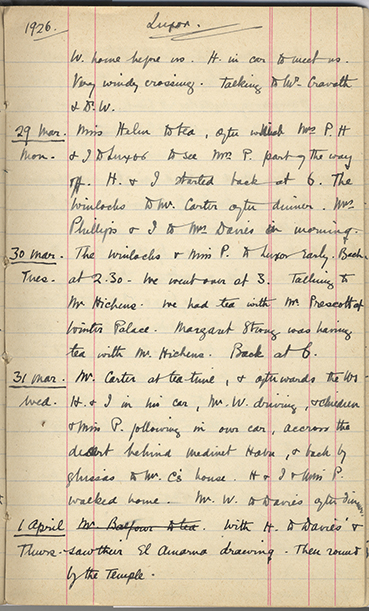 1926. Luxor.
W. home before us. H. in car to meet us.
Very windy crossing. Talking to Mr Cravath
& Dr. W.
29 Mar. Miss Helm to tea, after which Mrs P. H
Mon. & I to Luxor to see Mrs P. part of the way
off. H. & I started back at 6. The
Winlocks to Mr. Carter after dinner. Mrs
Phillips & I to Mrs Davies in morning.
30 Mar. The Winlocks & Miss P. to Luxor early. Back
Tues. at 2.30. We went over at 3. Talking to
Mr Hichens. We had tea with Mr Prescott at
Winter Palace. Margaret Strong was having
tea with Mr. Hichens. Back at 6.
31 Mar. Mr. Carter at tea time, & afterwards the Ws
Wed. H. & I in his car, Mr. W. driving, & children
& Miss P. following in own car, accross the
desert behind Medinet Habu, & back by
to Mr. C's house. H & I & Miss P.
walked home. Mr. W. to Davies after dinner.
1 April Mr. Balfour to tea. With H. to Davies' &
Thurs. saw their El Amarna drawing. Then round
by the Temple.